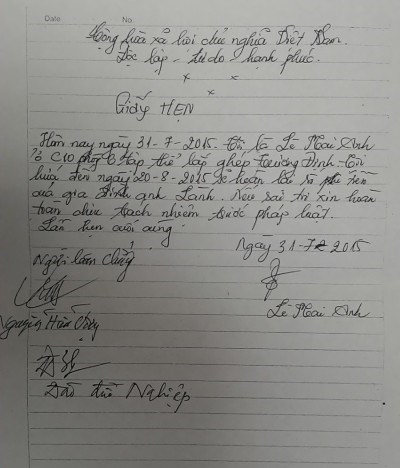 Date No.
Cộng hòa xã hội chủ nghĩa Việt Nam.
Độc lập - tự do - hạnh phúc.
x x x
Giấy HẸN
Hôm nay ngày 31-7-2015. Tôi là Lê Mai Anh
ở C10 phòng 6 tập thể lắp ghép trương Định. Tôi
hứa đến ngày 20-8-2015 sẽ hoàn lại số tiền
của gia đình anh Lành. Nếu sai tôi xin hoàn
toàn chịu trách nhiệm trước pháp luật.
Lần hẹn cuối cùng.
Ngày 31-7-2015
Người làm chứng
Lê Mai Anh
Nguyễn Hữu
Nghiệp